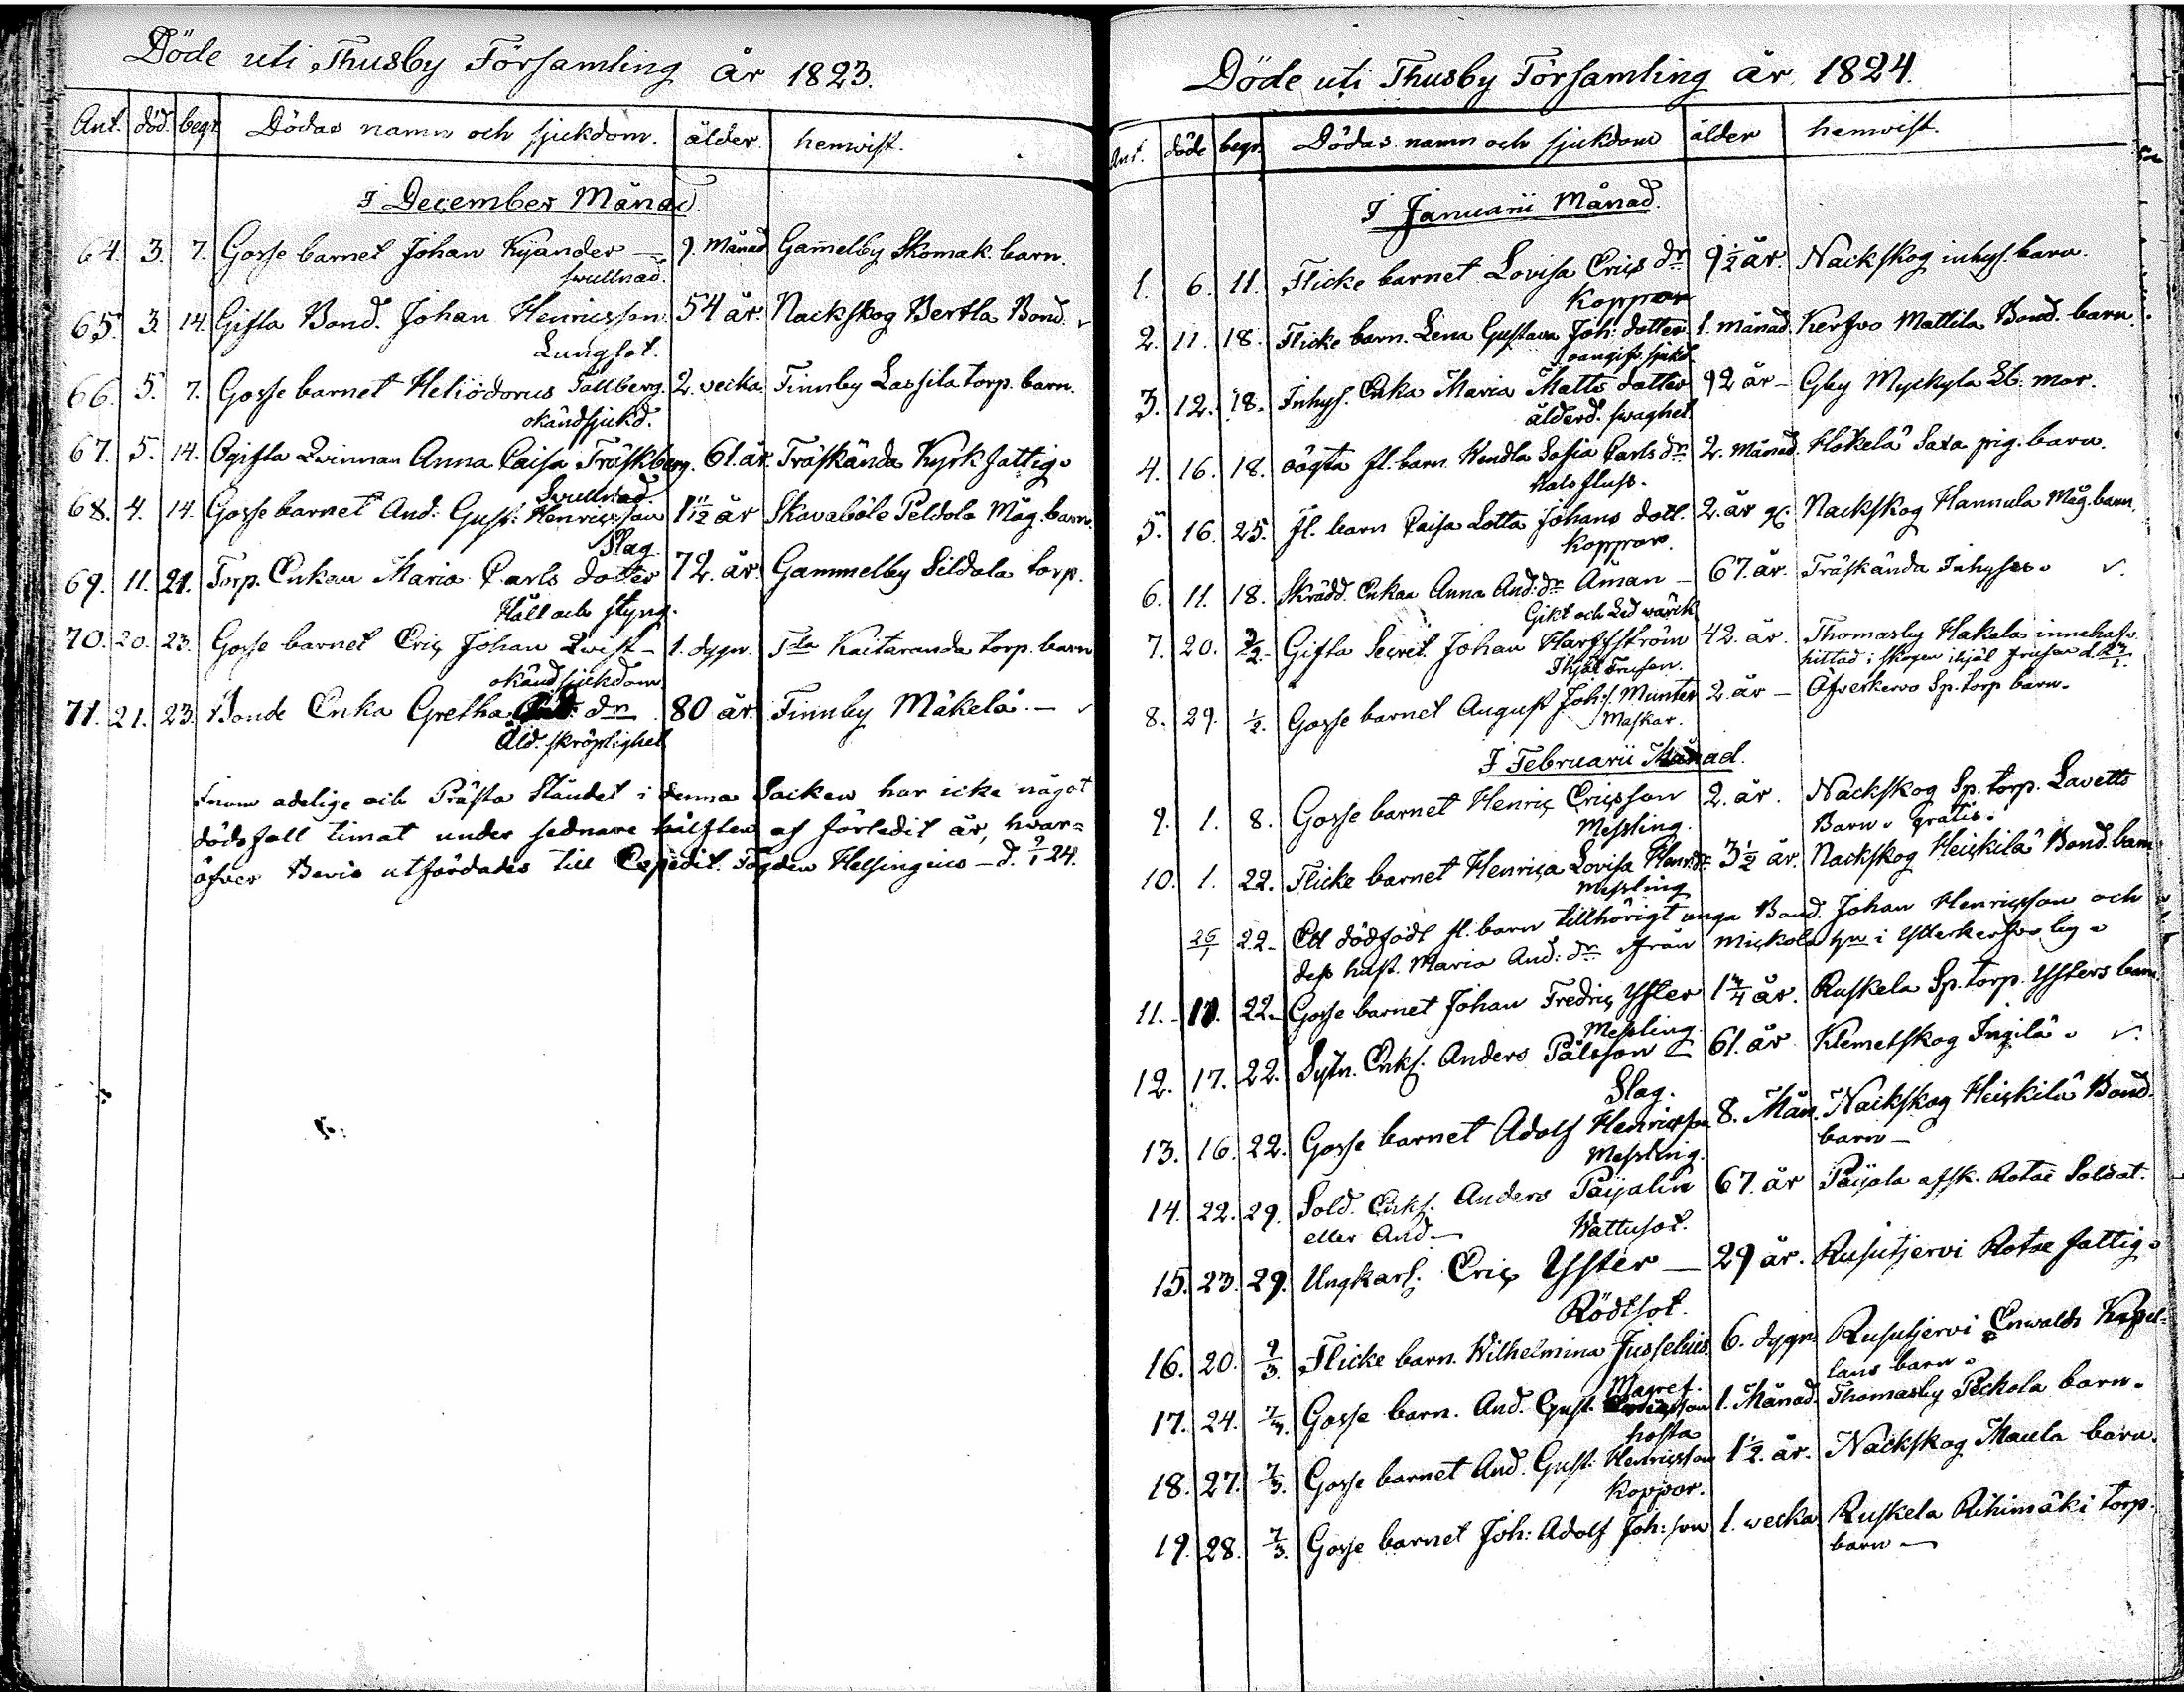 Döde uti Thusby Församling år 1823.
Ant. död. begr. Dödas namn och sjukdom. ålder. hemvist.
I December Månad.
64. 3. 7. Gosse barnet Johan Kyander — 9. Månad Gam̄elby Skomak. barn.
swullnad.
65. 3. 14. Gifta Bond. Johan Henricsson. 54 år. Nackskog Bertla Bond.
Lungsot.
66. 5. 7. Gosse barnet Heliodorus Sällberg. 2. vecka. Finnby Lassila torp. barn.
okänd sjukd.
67. 5. 14. Ogifta Qvinnan Anna Caisa Träskberg. 61. år. Träskända Kyrk fattig.
Swullnad.
68. 4. 14. Gosse barnet And: Gust: Henricsson 1 11/12 år Skavaböle Peldola Måg. barn.
Slag.
69. 11. 21. Torp. Enkan Maria Carls dotter 72. år. Gammelby Sildala torp.
Håll och styng.
70. 20. 23. Gosse barnet Eric Johan Qvist — 1. dygn. Kaitaranda torp. barn
okänd sjukdom.
71. 21. 23. Bonde Enka Gretha dr. 80 år. Finnby Mäkelä. —
Åld. skröplighet
Inom adelige och Prästa Ståndet i denna Socken har icke något
dödsfall timat under sednare hälften af förledit år, hvar=
öfver Bevis utfärdades till Expedit. Fogden Helsingius — d. 9/1 24.
Döde uti Thusby Församling år 1824.
Ant. döde begr. Dödas namn och sjukdom ålder hemvist.
I Januarii Månad.
1. 6. 11. Flicke barnet Lovisa Erics dr 9 1/2 år. Nackskog inhys. barn.
Koppor
2. 11. 18. Flicke barn. Lena Gustava Joh: dotter 1. månad. Kerfvo Mattila Bond. barn.
oangif. sjukd.
3. 12. 18. Inhys. Enka Maria Matts dotter 92 år — Gby Myckyla
ålderd. swaghet.
4. 16. 18. oägta fl. barn Hendla Sofia Carls dr 2. Månad. Hökelä Saxa pig. barn.
Hals fluss.
5. 16. 25. fl. barn Caisa Lotta Johans dott. 2. år Nackskog Hannula Måg. barn.
Koppor.
6. 11. 18. Skrädd. Enkan Anna And: dr Åman — 67. år. Träskända Inhyses.
Gikt och Led wärck
7. 20. Gifta Secret. Johan Hartzström 42. år. Thomasby Hakala innehaf.
Ihjäl frusen. hittad i skogen ihjäl frusen d.
8. 29. 1/2. Gosse barnet August Joh: s. Munter 2. år — Öfverkervo Sp. torp barn.
Maskar.
I Februarii Månad.
9. 1. 8. Gosse barnet Henric Ericsson 2. år. Nackskog Sp. torp. Lavetts
Messling. Barn. gratis.
10. 1. 22. Flicke barnet Henrica Lovisa Henr. dr. 3 1/2 år. Nackskog Heickilä Bond. barn
Messling
26/1 22. Ett dödfödt fl. barn tillhörigt unga Bond. Johan Henricsson och
dess hust. Maria And: dr från Mickola hn i Ytterkerfvo by.
11. 17. 22. Gosse barnet Johan Fredric Yster 1 3/4 år. Ruskela Sp. torp. Ysters barn.
Messling.
12. 17. 22. Sytn. Enkl. Anders Pålsson — 61. år. Klemetskog Ingilä.
Slag.
13. 16. 22. Gosse barnet Adolf Henricsson 8. Mån. Nackskog Heickilä Bond.
Messling. barn —
14. 22. 29. Sold. Enkl. Anders Paijalin 67. år Paijala afsk. Rotae Soldat.
eller And — Wattusot.
15. 23. 29. Ungkarl. Eric Yster — 29 år. Rusutjervi Rotae fattig.
Rödtsot.
16. 20. 9/3. Flicke barn. Wilhelmina Jusselius. 6. dygn. Rusutjervi Enwalds Kapel=
Magref. lans barn.
17. 24. 7/3. Gosse barn. And. Gust. Henricsson 1. Månad. Thomasby Peckola barn.
hosta
18. 27. 7/3. Gosse barnet And. Gust: Henricsson 1 1/2. år. Nackskog Maula barn.
Koppor.
19. 28. 7/3. Gosse barnet Joh: Adolf Joh: son 1. wecka. Ruskela Rihimäki torp.
barn —